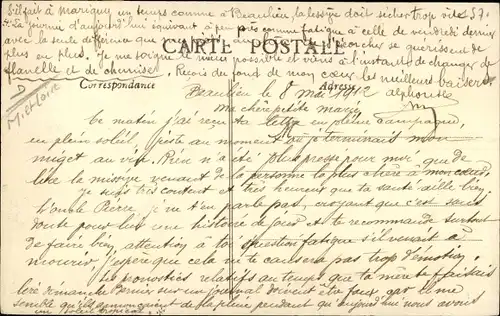 S'il fait à Marigny un temps comme à Beaulieu, la lessive doit sécher trop vite 57.
La journée d'aujourd'hui équivaut à peu près comme fatigue à celle de vendredi dernier
avec la seule différence que
de plus en plus. Je me soigne le mieux possible et viens à l'instant de changer de
flanelle et de chemise. Reçois du fond de mon cœur les meilleurs baisers
CARTE POSTALE
Correspondance
Adresse
M.et Loire
Beaulieu le 8 Mai 1912
alphonse
Ma chère petite Marie
Ce matin j'ai reçu ta lettre en pleine campagne,
en plein soleil, juste au moment où je terminais mon
au vin. Rien n'a été plus pressé pour moi, que de
lire la missive venant de la personne la plus chère à mon cœur.
Je suis très content et très heureux que ta santé aille bien.
L'oncle Pierre, je ne t'en parle pas, croyant que c'est sans
doute pour lui une histoire de jours et te recommande surtout
de faire bien attention à la question fatigue s'il venait à
mourir, j'espère que cela ne te causera pas trop d'émotion.
Les pronostics relatifs au temps que ta mère te faisait
lire dimanche dernier sur un journal doivent être faux car il me
semble qu'ils annonçaient de la pluie pendant qu'aujourd'hui nous avons
un soleil tropical